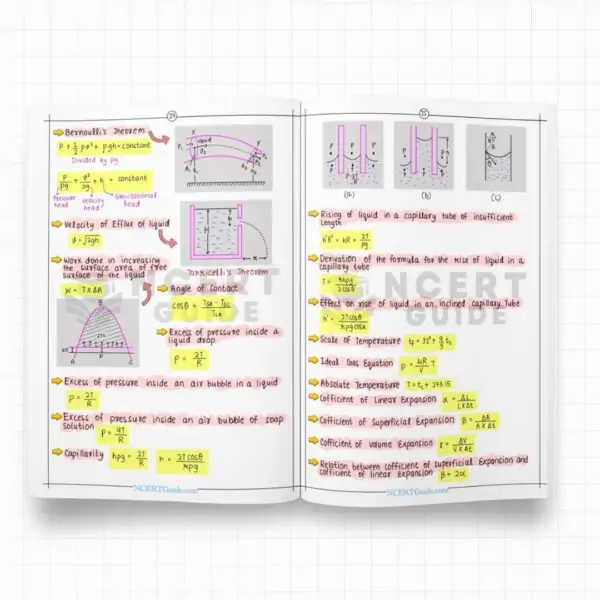 24
⇒ Bernoulli's Theorem
P + ½ ρv² + ρgh = constant
Divided by ρg
P/ρg + v²/2g + h = constant
Pressure head velocity head Gravitational head
X
Liquid
⇒ Velocity of Efflux of liquid
v = √2gh
⇒ Work done in increasing
the surface area of free
surface of the liquid
W = T × ΔA
Torricelli's Theorem
⇒ Angle of Contact
cosθ = (TSA - TSL)/TLA
⇒ Excess of pressure inside a
liquid drop
P = 2T/R
B
A F C
⇒ Excess of pressure inside an air bubble in a liquid
P = 2T/R
⇒ Excess of pressure inside an air bubble of soap
solution P = 4T/R
⇒ Capillarity hρg = 2T/R h = 2Tcosθ/rρg
NCERTGuide.com
(a) (b) (c)
⇒ Rising of liquid in a capillary tube of insufficient
length
h'R' = hR = 2T/ρg
⇒ Derivation of the formula for the rise of liquid in a
capillary tube
T = rhρg/2cosθ
⇒ Effect on rise of liquid in an inclined capillary tube
h' = 2Tcosθ/rρgcosα
⇒ Scale of Temperature tF = 32° + 9/5 tc
⇒ Ideal Gas Equation P = μR/V T
⇒ Absolute Temperature T = tc + 273.15
⇒ Cofficient of Linear Expansion α = ΔL/L×Δt
⇒ Cofficient of Superficial Expansion β = ΔA/A×Δt
⇒ Cofficient of volume Expansion γ = ΔV/V×Δt
⇒ Relation between cofficient of superficial Expansion and
cofficient of linear Expansion β = 2α
NCERTGuide.com
NCERT
GUIDE
NCERT
GUIDE